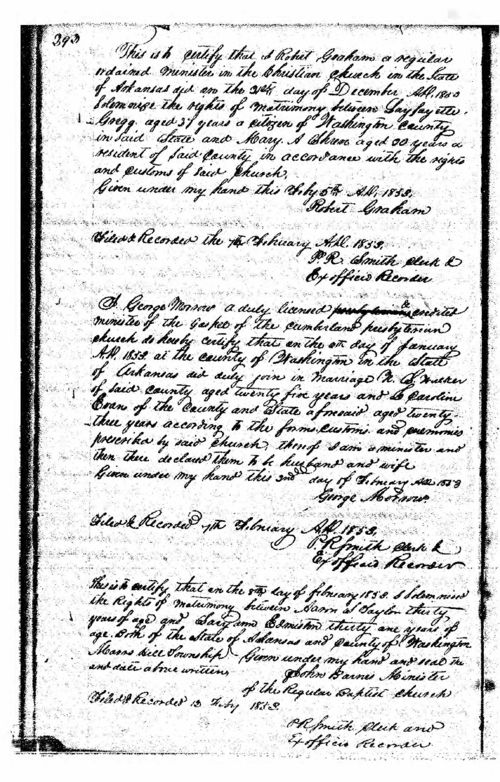 393
This is to certify that I Robert Graham a regular
ordained minister in the Christian Church in the State
of Arkansas did on the day of December AD. 1852
Solemnize the rights of matrimony between Layfayette
Gregg aged years a citizen of Washington County
in said State and Mary A. aged years a
resident of said County in accordance with the rights
and customs of said Church.
Given under my hand this Feby 5th AD. 1853.
Robert Graham
Filed & Recorded the 7th February AD. 1853.
P. R. Smith Clerk &
Ex officio Recorder
I George Morrow a duly licensed
minister of the Gospel of the Cumberland presbyterian
church do hereby certify that on the day of January
AD. 1853 at the county of Washington in the State
of Arkansas did duly join in marriage
of said county aged twenty five years and Caroline
of the County and State aforesaid aged twenty-
three years according to the forms customs and
prescribed by said church, thereof I am a minister and
then there declared them to be husband and wife
Given under my hand this 2nd day of February AD. 1853
George Morrow
Filed & Recorded 7th February AD. 1853.
P R Smith Clerk &
Ex officio Recorder
This is to certify, that on the 8th day of february 1853. I Solemnised
the Rights of matrimony between Aaron S Taylor thirty,
years of age and Sary ann Edmiston thirty one years of
age. both of the State of Arkansas and County of Washington
Mearns hill Township Given under my hand and seal the
and date above written. John Barnes Minister
of the Regular Baptist church
Filed & Recorded 13 Feby 1853
P R Smith Clerk and
Ex officio Recorder